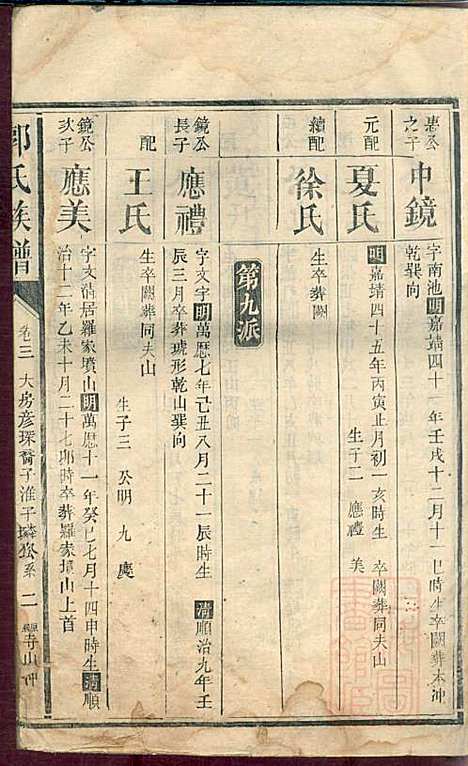 惠公之子
中鏡
字南池明嘉靖四十一年壬戌十二月十一巳時生卒闕葬本冲
乾巽向
元配
夏氏
明嘉靖四十五年丙寅正月初一亥時生 卒闕葬同夫山
生子二 應禮 美
續配
徐氏
生卒葬闕
第九派
鏡公長子
應禮
字文宇明萬曆七年己丑八月二十一辰時生 清順治九年壬
辰三月卒葬琥形乾山巽向
配
王氏
生卒闕葬同夫山
生子三 公明 九 慶
鏡公次子
應美
字文滔居羅家墳山明萬曆十一年癸巳七月十四申時生清順
治十二年乙未十月二十七卯時卒葬羅家墳山上首
郭氏族譜
卷三 大房彥琛裔子淮子璘 系 二 寺山冲